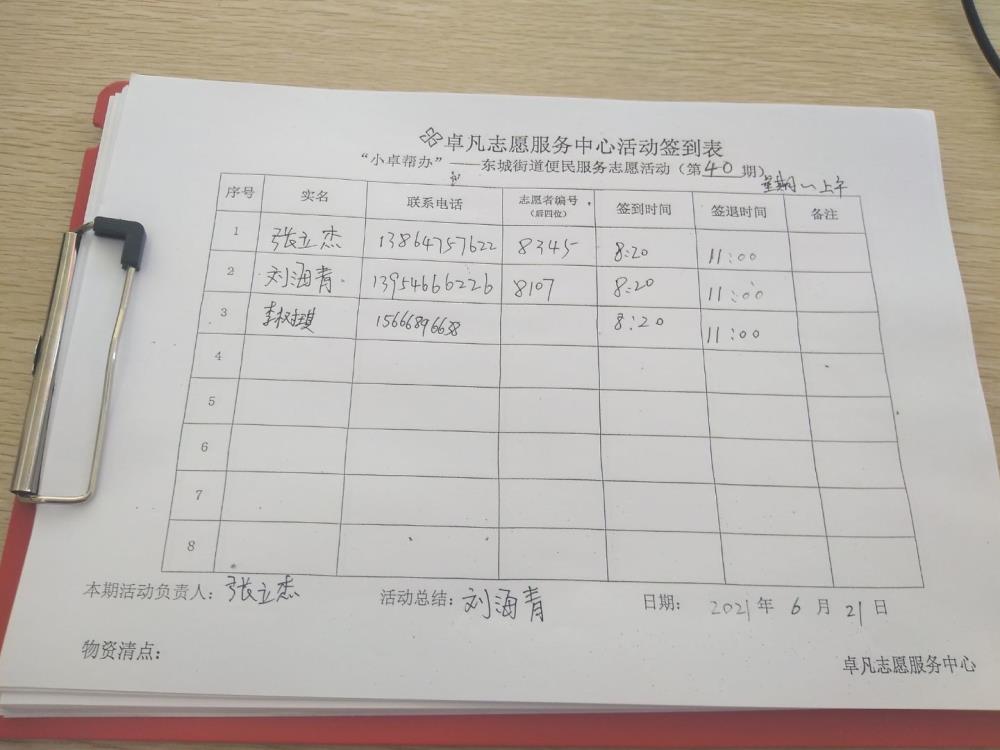 卓凡志愿服务中心活动签到表
“小卓帮办”——东城街道便民服务志愿活动（第40期）
星期一上午
序号 实名 联系电话 志愿者编号（后四位） 签到时间 签退时间 备注
1 张立杰 13864757622 8345 8:20 11:00
2 刘海青 13954666226 8107 8:20 11:00
3 15666896638 8:20 11:00
4
5
6
7
8
本期活动负责人：张立杰 活动总结：刘海青 日期： 2021年 6月 21日
物资清点：
卓凡志愿服务中心